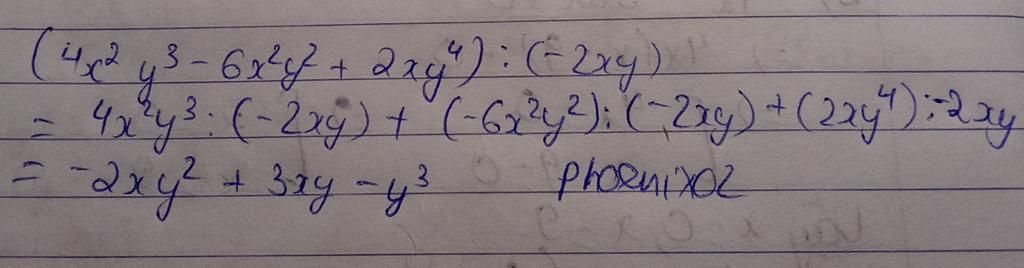 (4x² y³ - 6x²y² + 2xy⁴) : (-2xy)
= 4x²y³ : (-2xy) + (-6x²y²) : (-2xy) + (2xy⁴) : -2xy
= -2xy² + 3xy - y³ phoenixoz